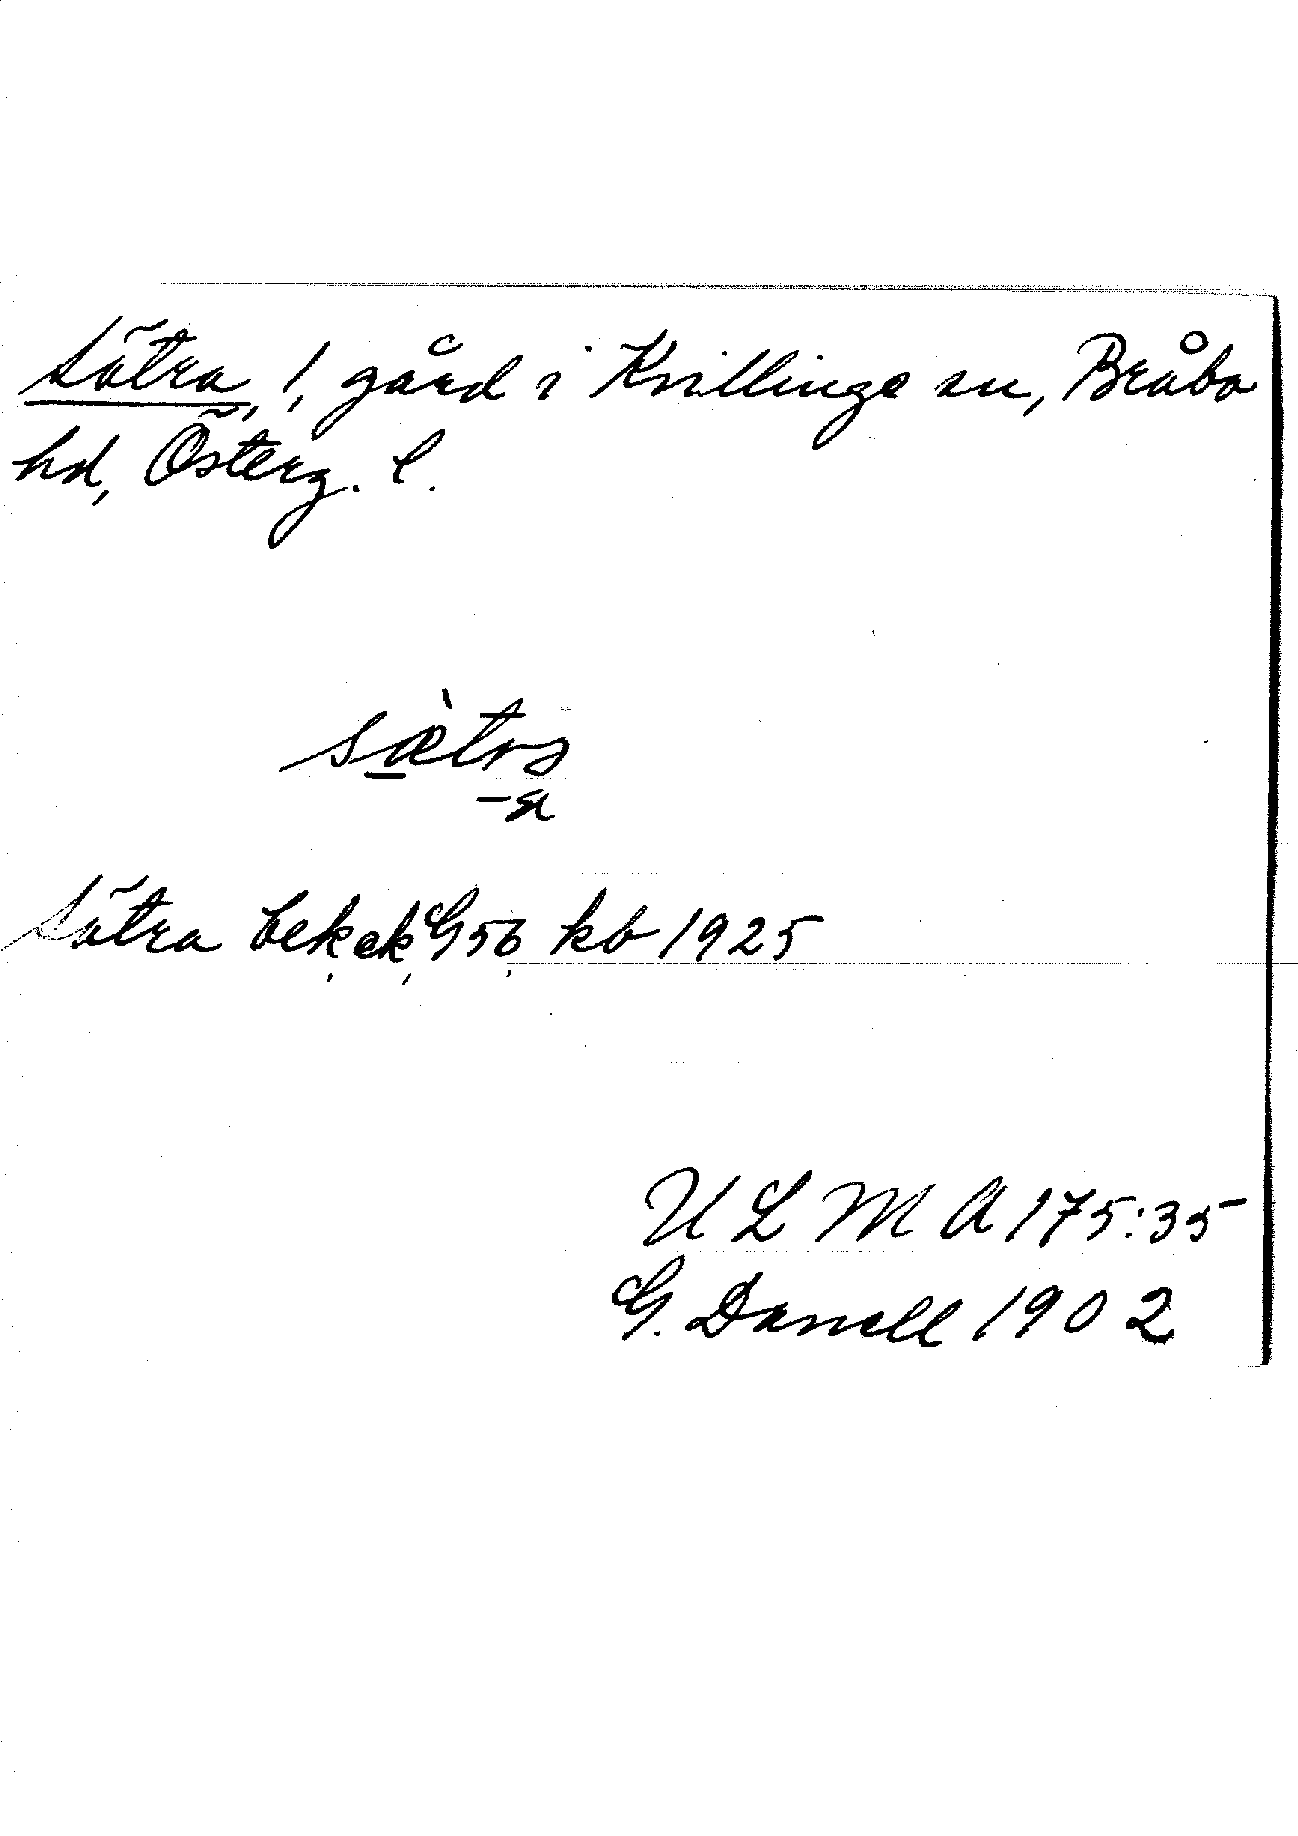 Sätra, 1, gård i Kvillinge sn, Bråbo
hd, Österg. l.
sæ̀trɔ
-a
Sätra bek, ek, G56, kb 1925
ULMA 175:35
G. Danell 1902